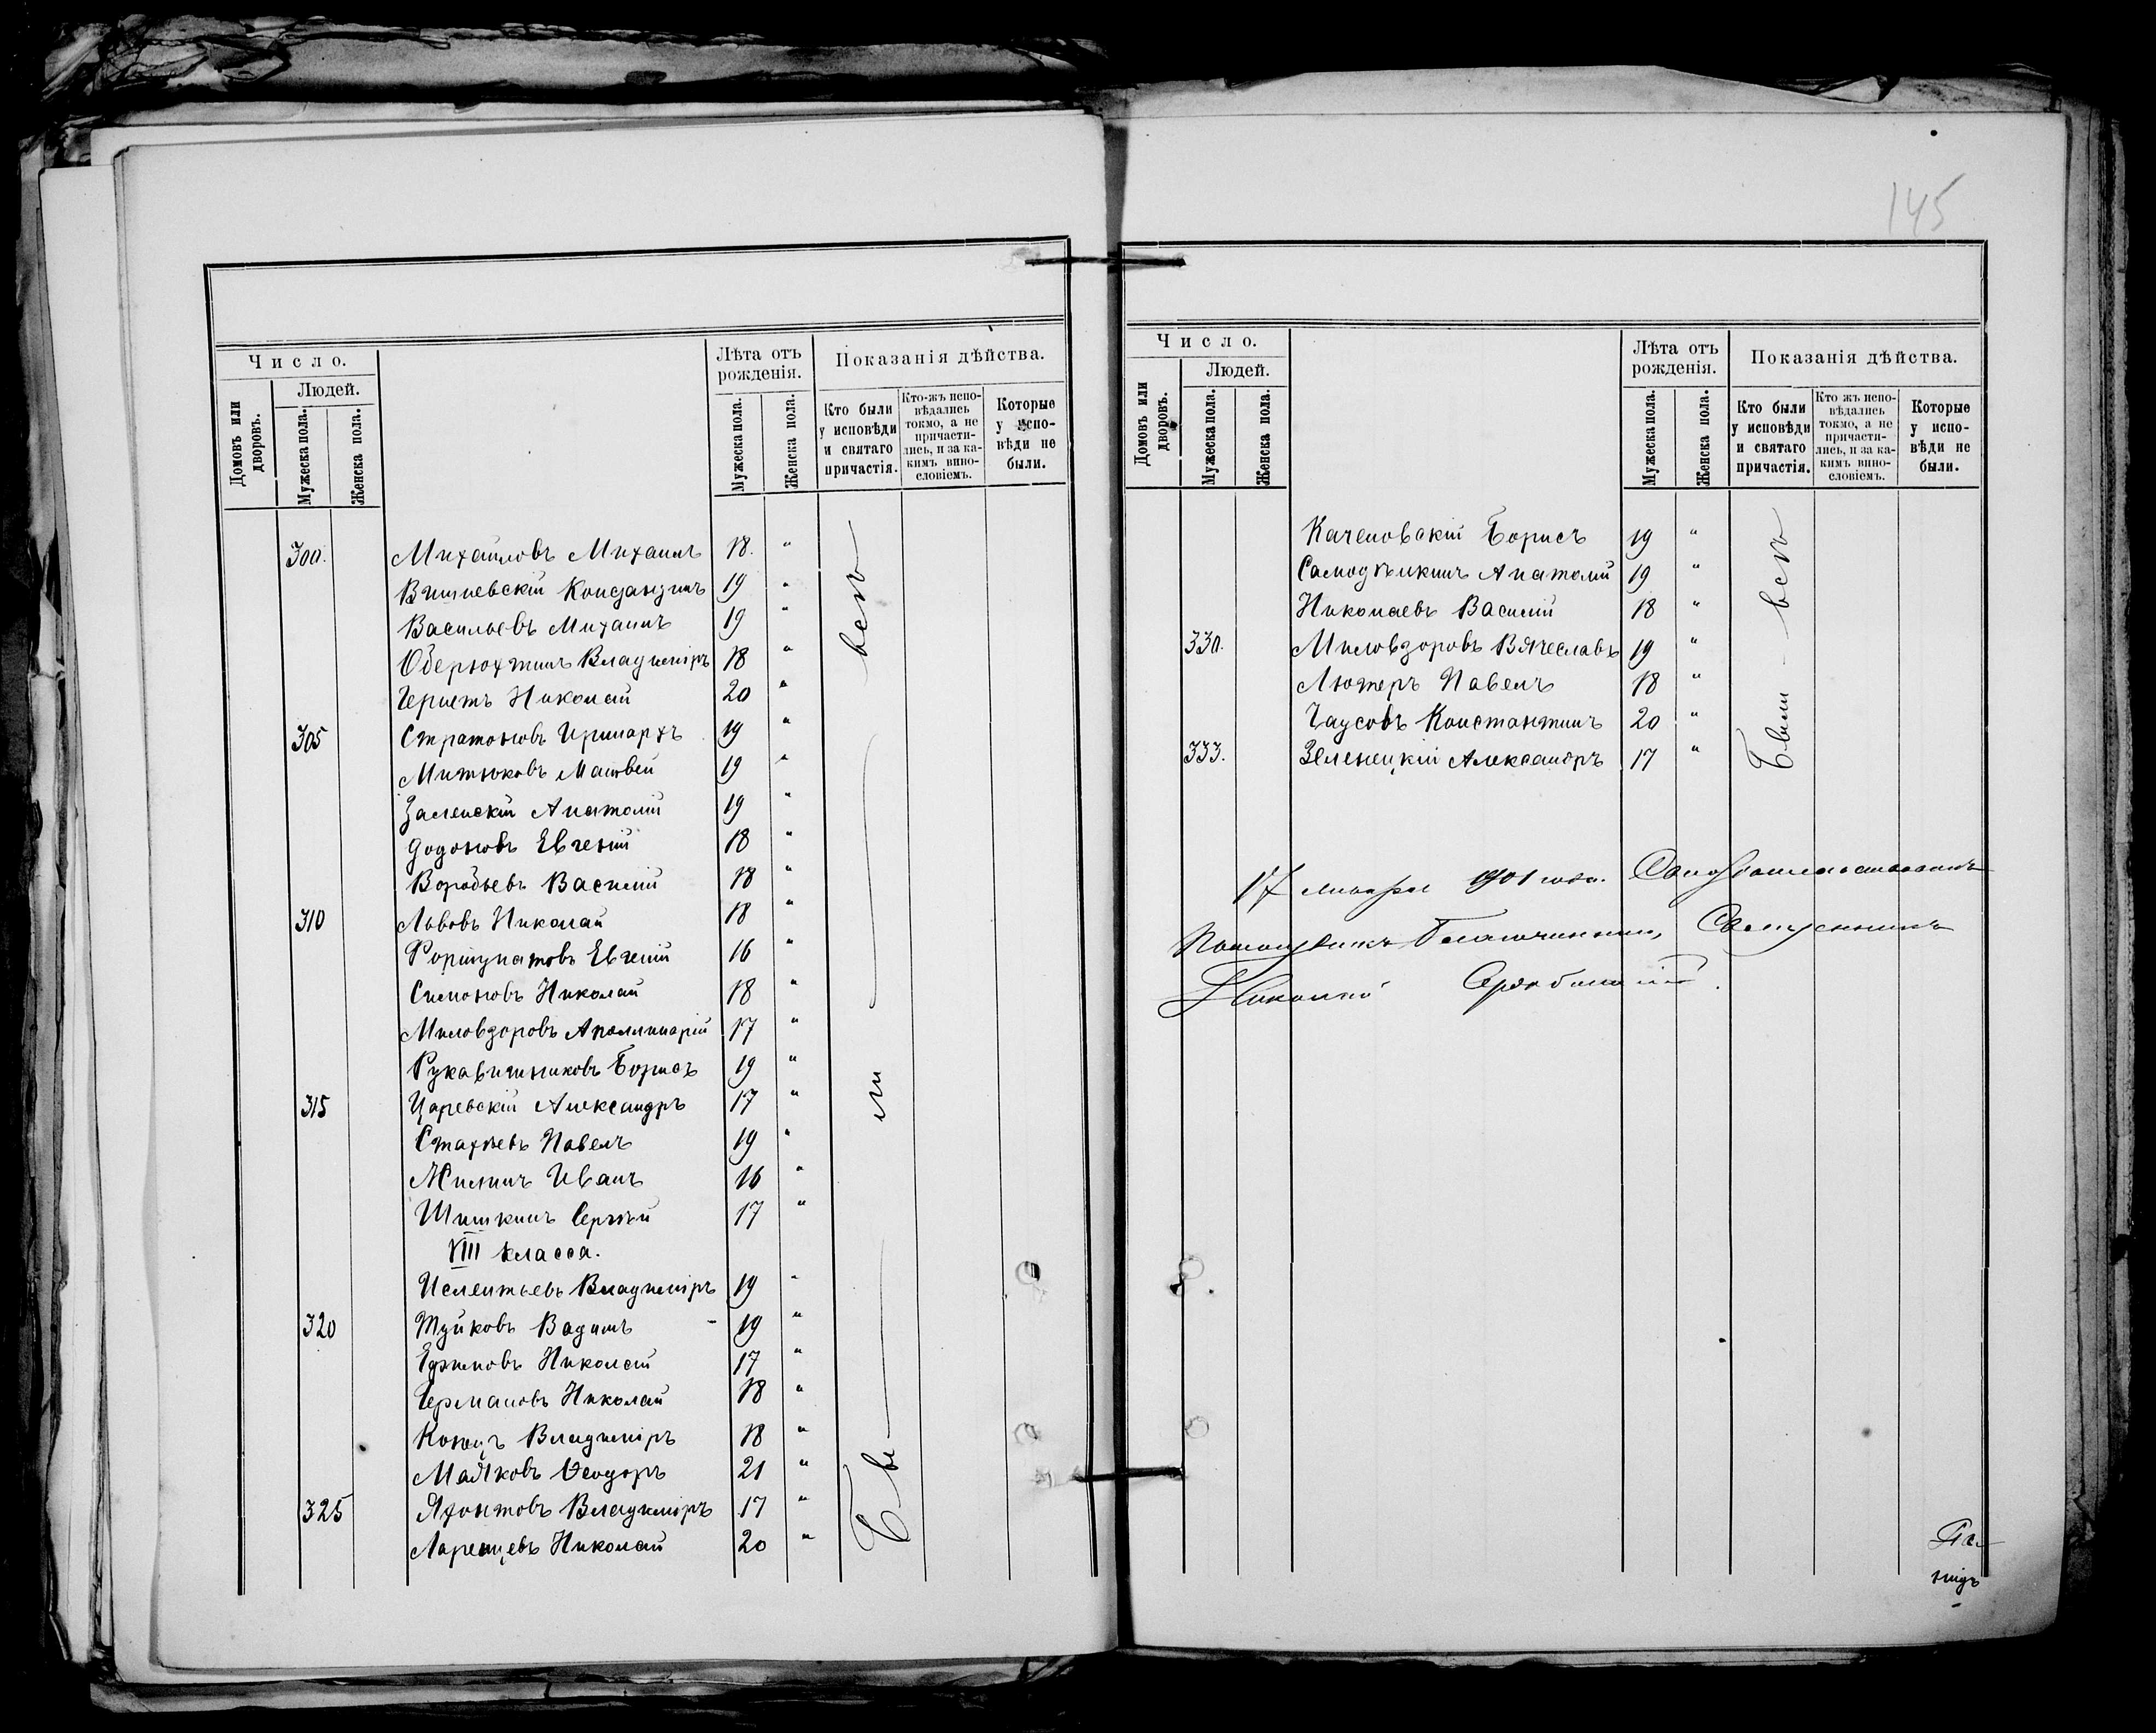 Число.
Людей.
Домовъ или дворовъ.
Мужеска пола.
Женска пола.
Лѣта отъ рожденія.
Мужеска пола.
Женска пола.
Показанія дѣйства.
Кто были у исповѣди и святаго причастія.
Кто-жъ исповѣдались токмо, а не причастились, и за какимъ винословіемъ.
Которые у исповѣди не были.
300. Михайловъ Михаилъ 18. "
Вишневскій Константинъ 19 "
Васильевъ Михаилъ 19 "
Оберюхтинъ Владиміръ 18 "
Гернетъ Николай 20 "
305 Стратоновъ Иринархъ 19 "
Митюковъ Матвей 19 "
Заленскій Анатолій 19 "
Додоновъ Евгеній 18 "
Воробьевъ Василій 18 "
310 Львовъ Николай 18 "
Фортунатовъ Евгеній 16 "
Симоновъ Николай 18 "
Миловзоровъ Аполлинарій 17 "
Рукавишниковъ Борисъ 19 "
315 Царевскій Александръ 17 "
Стахѣевъ Павелъ 19 "
Жилинъ Иванъ 16 "
Шишкинъ Сергѣй 17 "
VIII класса.
Ислентьевъ Владиміръ 19 "
320 Жуйковъ Вадимъ 19 "
Ефимовъ Николай 17 "
Германовъ Николай 18 "
Конецъ Владиміръ 18 "
Майковъ Ѳеодоръ 21 "
325 Яхонтовъ Владиміръ 17 "
Ларенцевъ Николай 20 "
Бы — ли — всѣ
145
Число.
Людей.
Домовъ или дворовъ.
Мужеска пола.
Женска пола.
Лѣта отъ рожденія.
Мужеска пола.
Женска пола.
Показанія дѣйства.
Кто были у исповѣди и святаго причастія.
Кто жъ исповѣдались токмо, а не причастились, и за какимъ винословіемъ.
Которые у исповѣди не были.
Каченовскій Борисъ 19 "
Самодѣлкинъ Анатолій 19 "
Николаевъ Василій 18 "
330. Миловзоровъ Вячеславъ 19 "
Лютеръ Павелъ 18 "
Чаусовъ Константинъ 20 "
333. Зеленецкій Александръ 17 "
Были - всѣ
17 1901 года.
Помощникъ Благочиннаго, Священникъ
Николай